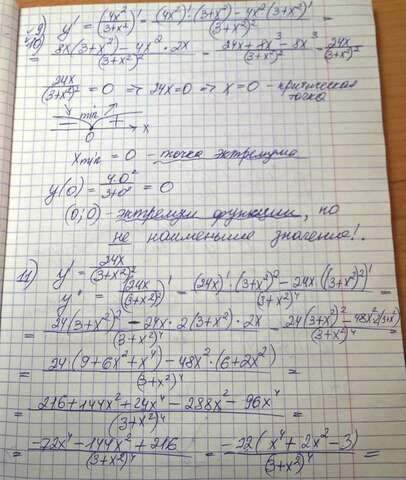 9) 10) y' = (4x²/(3+x²))' = ((4x²)'·(3+x²)-4x²(3+x²)')/(3+x²)² =
= (8x(3+x²)-4x²·2x)/(3+x²)² = (24x+8x³-8x³)/(3+x²)² = 24x/(3+x²)²
24x/(3+x²)² = 0 => 24x=0 => x=0 - критическая точка
min
- + x
0
x min = 0 - точка экстремума
y(0) = 4·0²/(3+0²) = 0
(0;0) - экстремум функции, но
не наименьшее значение!.
11) y' = 24x/(3+x²)²
y'' = (24x/(3+x²)²)' = ((24x)'·(3+x²)²-24x·((3+x²)²)')/(3+x²)⁴ =
= (24(3+x²)²-24x·2(3+x²)·2x)/(3+x²)⁴ = (24(3+x²)²-48x²·2(3+x²))/(3+x²)⁴ =
= (24(9+6x²+x⁴)-48x²·(6+2x²))/(3+x²)⁴ =
= (216+144x²+24x⁴-288x²-96x⁴)/(3+x²)⁴ =
= (-72x⁴-144x²+216)/(3+x²)⁴ = -72(x⁴+2x²-3)/(3+x²)⁴ =